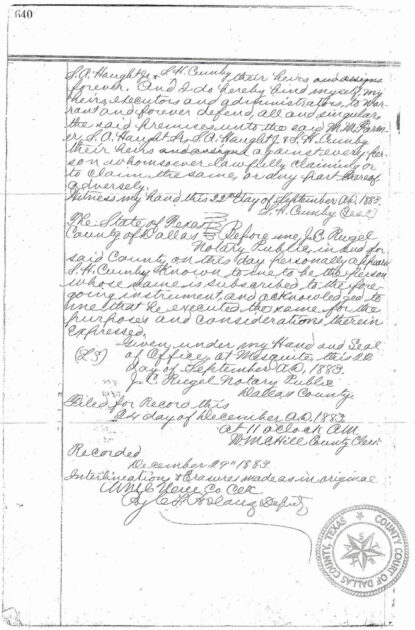 640
S. A. Haught Jr & S. H. Cumby their heirs and assigns
forever. And I do hereby bind myself, my
heirs, executors and administrators, to War-
rant and forever defend, all and singular
the said premises unto the said W. M.
S. A. Haught Sr, S. A. Haught Jr & S. H. Cumby
their heirs and assigns against every per-
son whomsoever lawfully claiming or
to claim the same, or any part thereof
adversely.
Witness my hand this 22nd day of September A.D. 1883.
S. H. Cumby
The State of Texas
County of Dallas Before me J. C. Rugel
Notary Public in and for
said County, on this day personally appeared
S. H. Cumby known to me to be the person
whose name is subscribed to the fore-
going instrument, and acknowledged to
me that he executed the same for the
purposes and considerations therein
expressed.
Given under my Hand and Seal
of Office, at Mesquite, this 22
day of September A.D. 1883.
J. C. Rugel Notary Public
Dallas County
Filed for Record this
24 day of December A.D. 1883
At 11 oclock A.M.
W. M. C. Hill County Clerk
Recorded
December 29" 1883
Interlineations & Erasures made as in original
Co Clk
By Deputy
COUNTY COURT OF DALLAS COUNTY, TEXAS